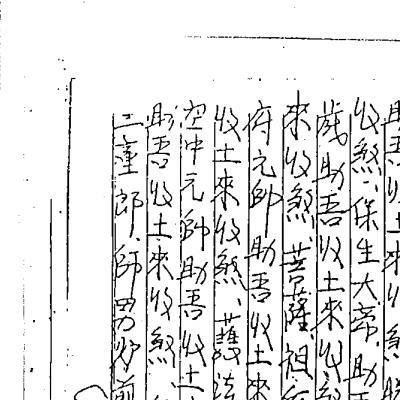 助吾收土來收煞
收煞、保生大帝、助
歲助吾收土來收煞
來收煞、菩薩祖
府元帥助吾收土來
收土來收煞、護法
空中元帥助吾收土
助吾收土來收煞
三童郎、師男